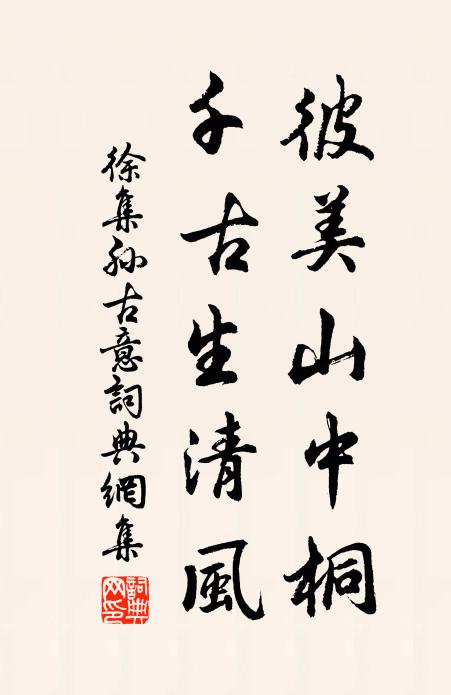 彼美山中桐
千古生清風
徐集孙古意詞典網集
詞典网印